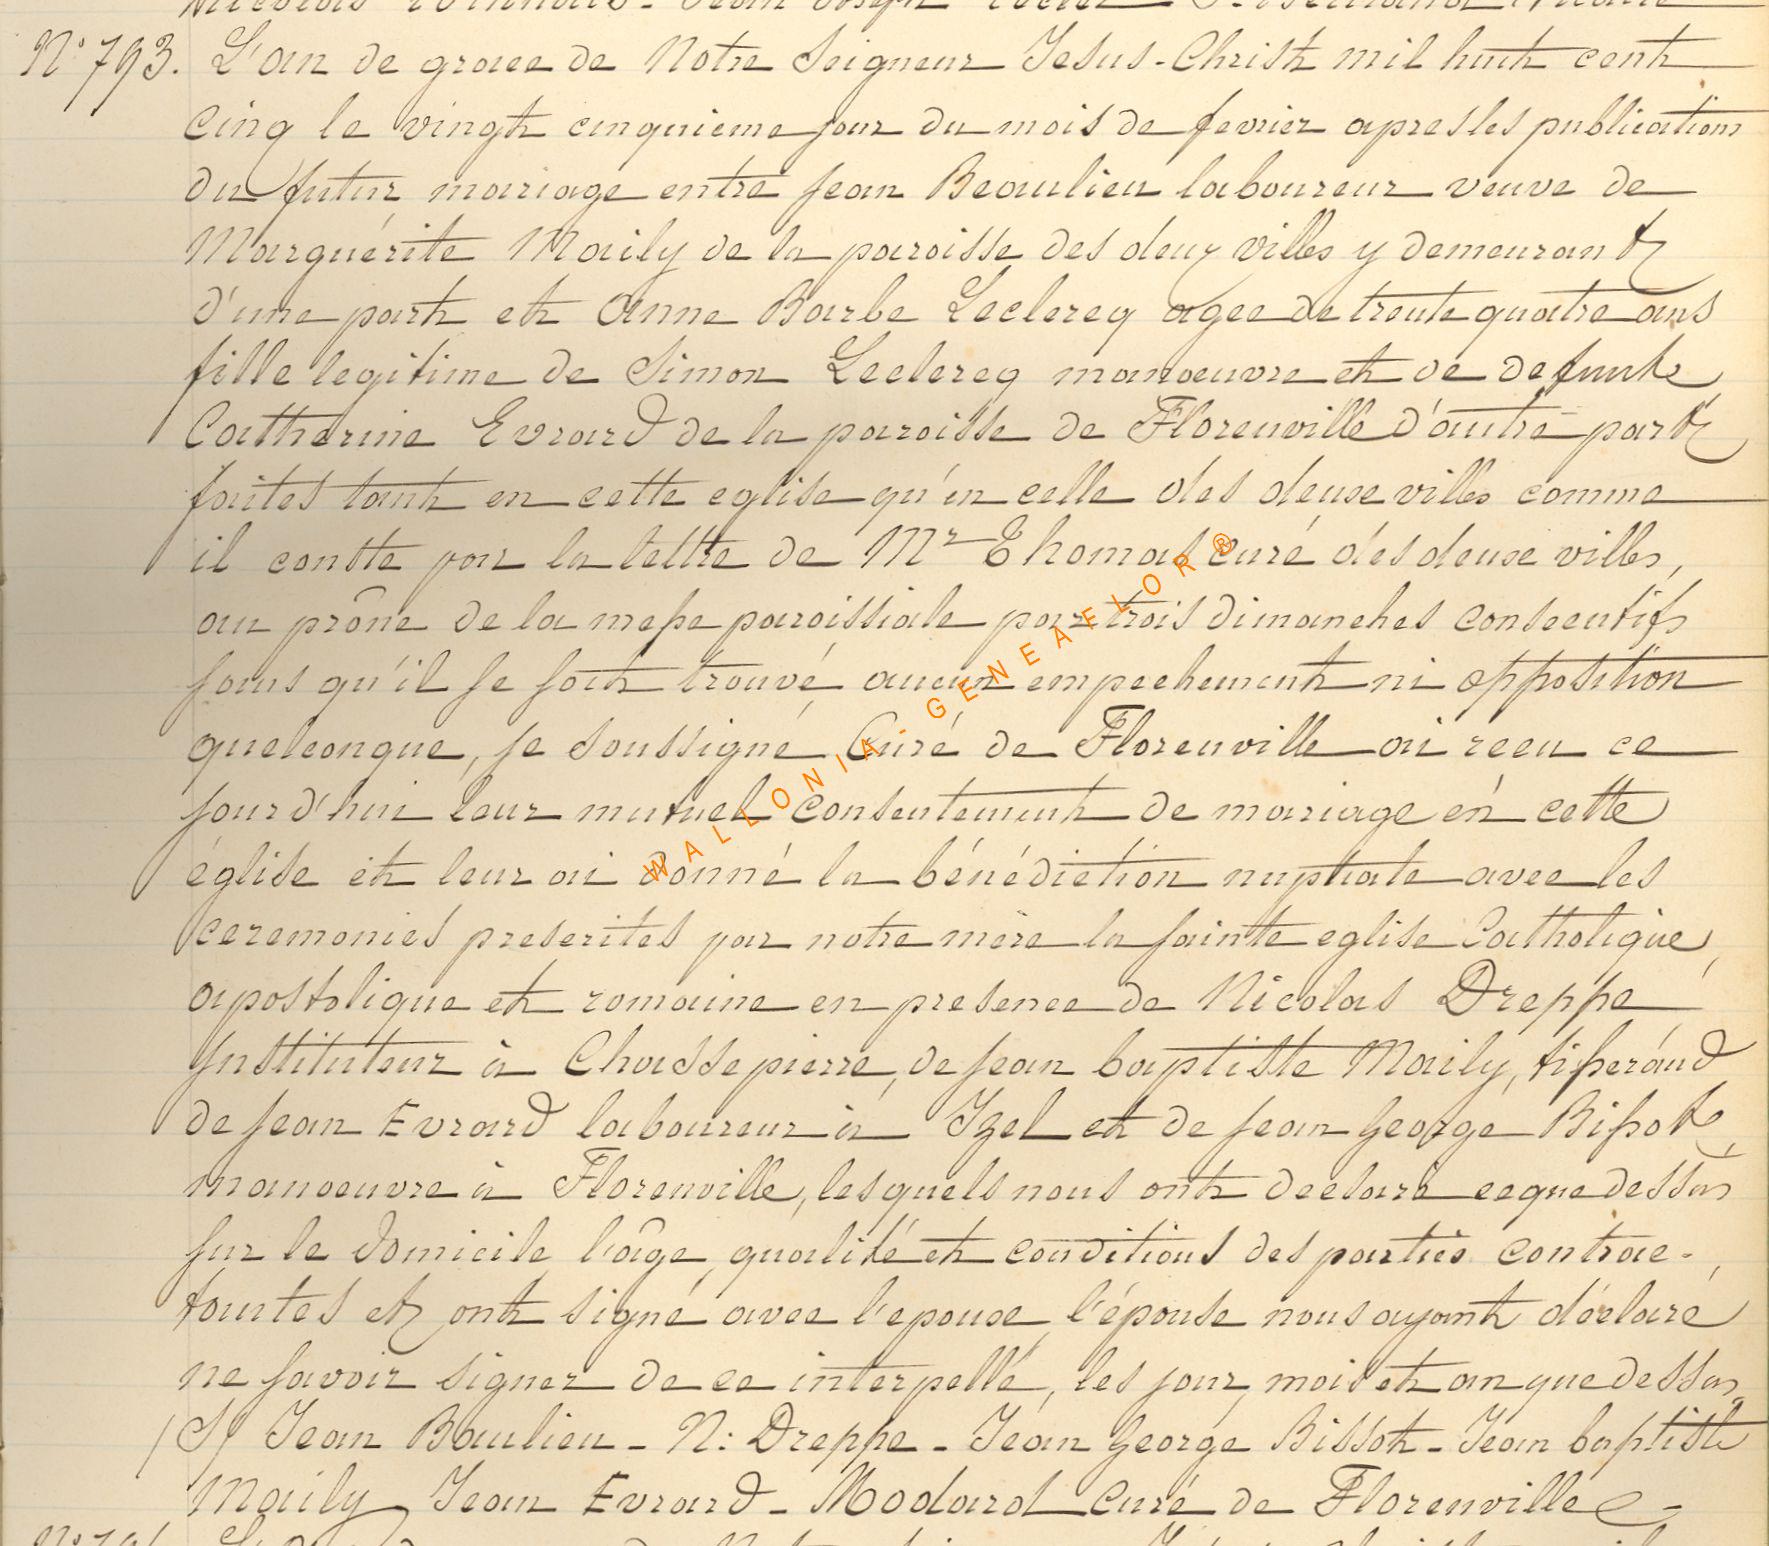 N° 793. L'an de grace de Notre Seigneur Jesus-Christ mil huit cent
cinq le vingt cinquieme jour du mois de fevrier apres les publications
du futur mariage entre jean Beaulieu laboureur veuve de
Marguérite Maily de la paroisse des deux villes y demeurant
d'une part et Anne Barbe Leclercq agee de trente quatre ans
fille legitime de Simon Leclercq manoeuvre et de defunte
Catherine Evrard de la paroisse de Florenville d'autre part
faites tant en cette eglise qu'en celle des deuse villes comme
il conste par la lettre de Mr Thomas curé des deuse villes,
au prône de la messe paroissiale par trois dimanches consecutifs
sans qu'il se soit trouvé aucun empechement ni opposition
quelconque, je soussigné Curé de Florenville ai recu ce
jourd'hui leur mutuel consentement de mariage en cette
église et leur ai donné la bénédiction nuptiale avec les
ceremonies prescrites par notre mère la sainte eglise Catholique,
apostolique et romaine en presence de Nicolas Dreppe
Instituteur à Chassepierre, de jean baptiste Maily, tisserand
de jean Evrard laboureur à Izel et de jean George Bissot
manoeuvre à Florenville, lesquels nous ont declaré ceque dessus
sur le domicile l'âge, qualité et conditions des parties contrac-
tantes et ont signé avec l'epouse, l'épouse nous ayant déclaré
ne savoir signer de ce interpellé, les jour, mois et an que dessus
(S) Jean Baulieu - N: Dreppe - Jean George Bissot - Jean baptiste
Maily, Jean Evrard - Modard curé de Florenville -
WALLONIA - GENEAFLOR ®